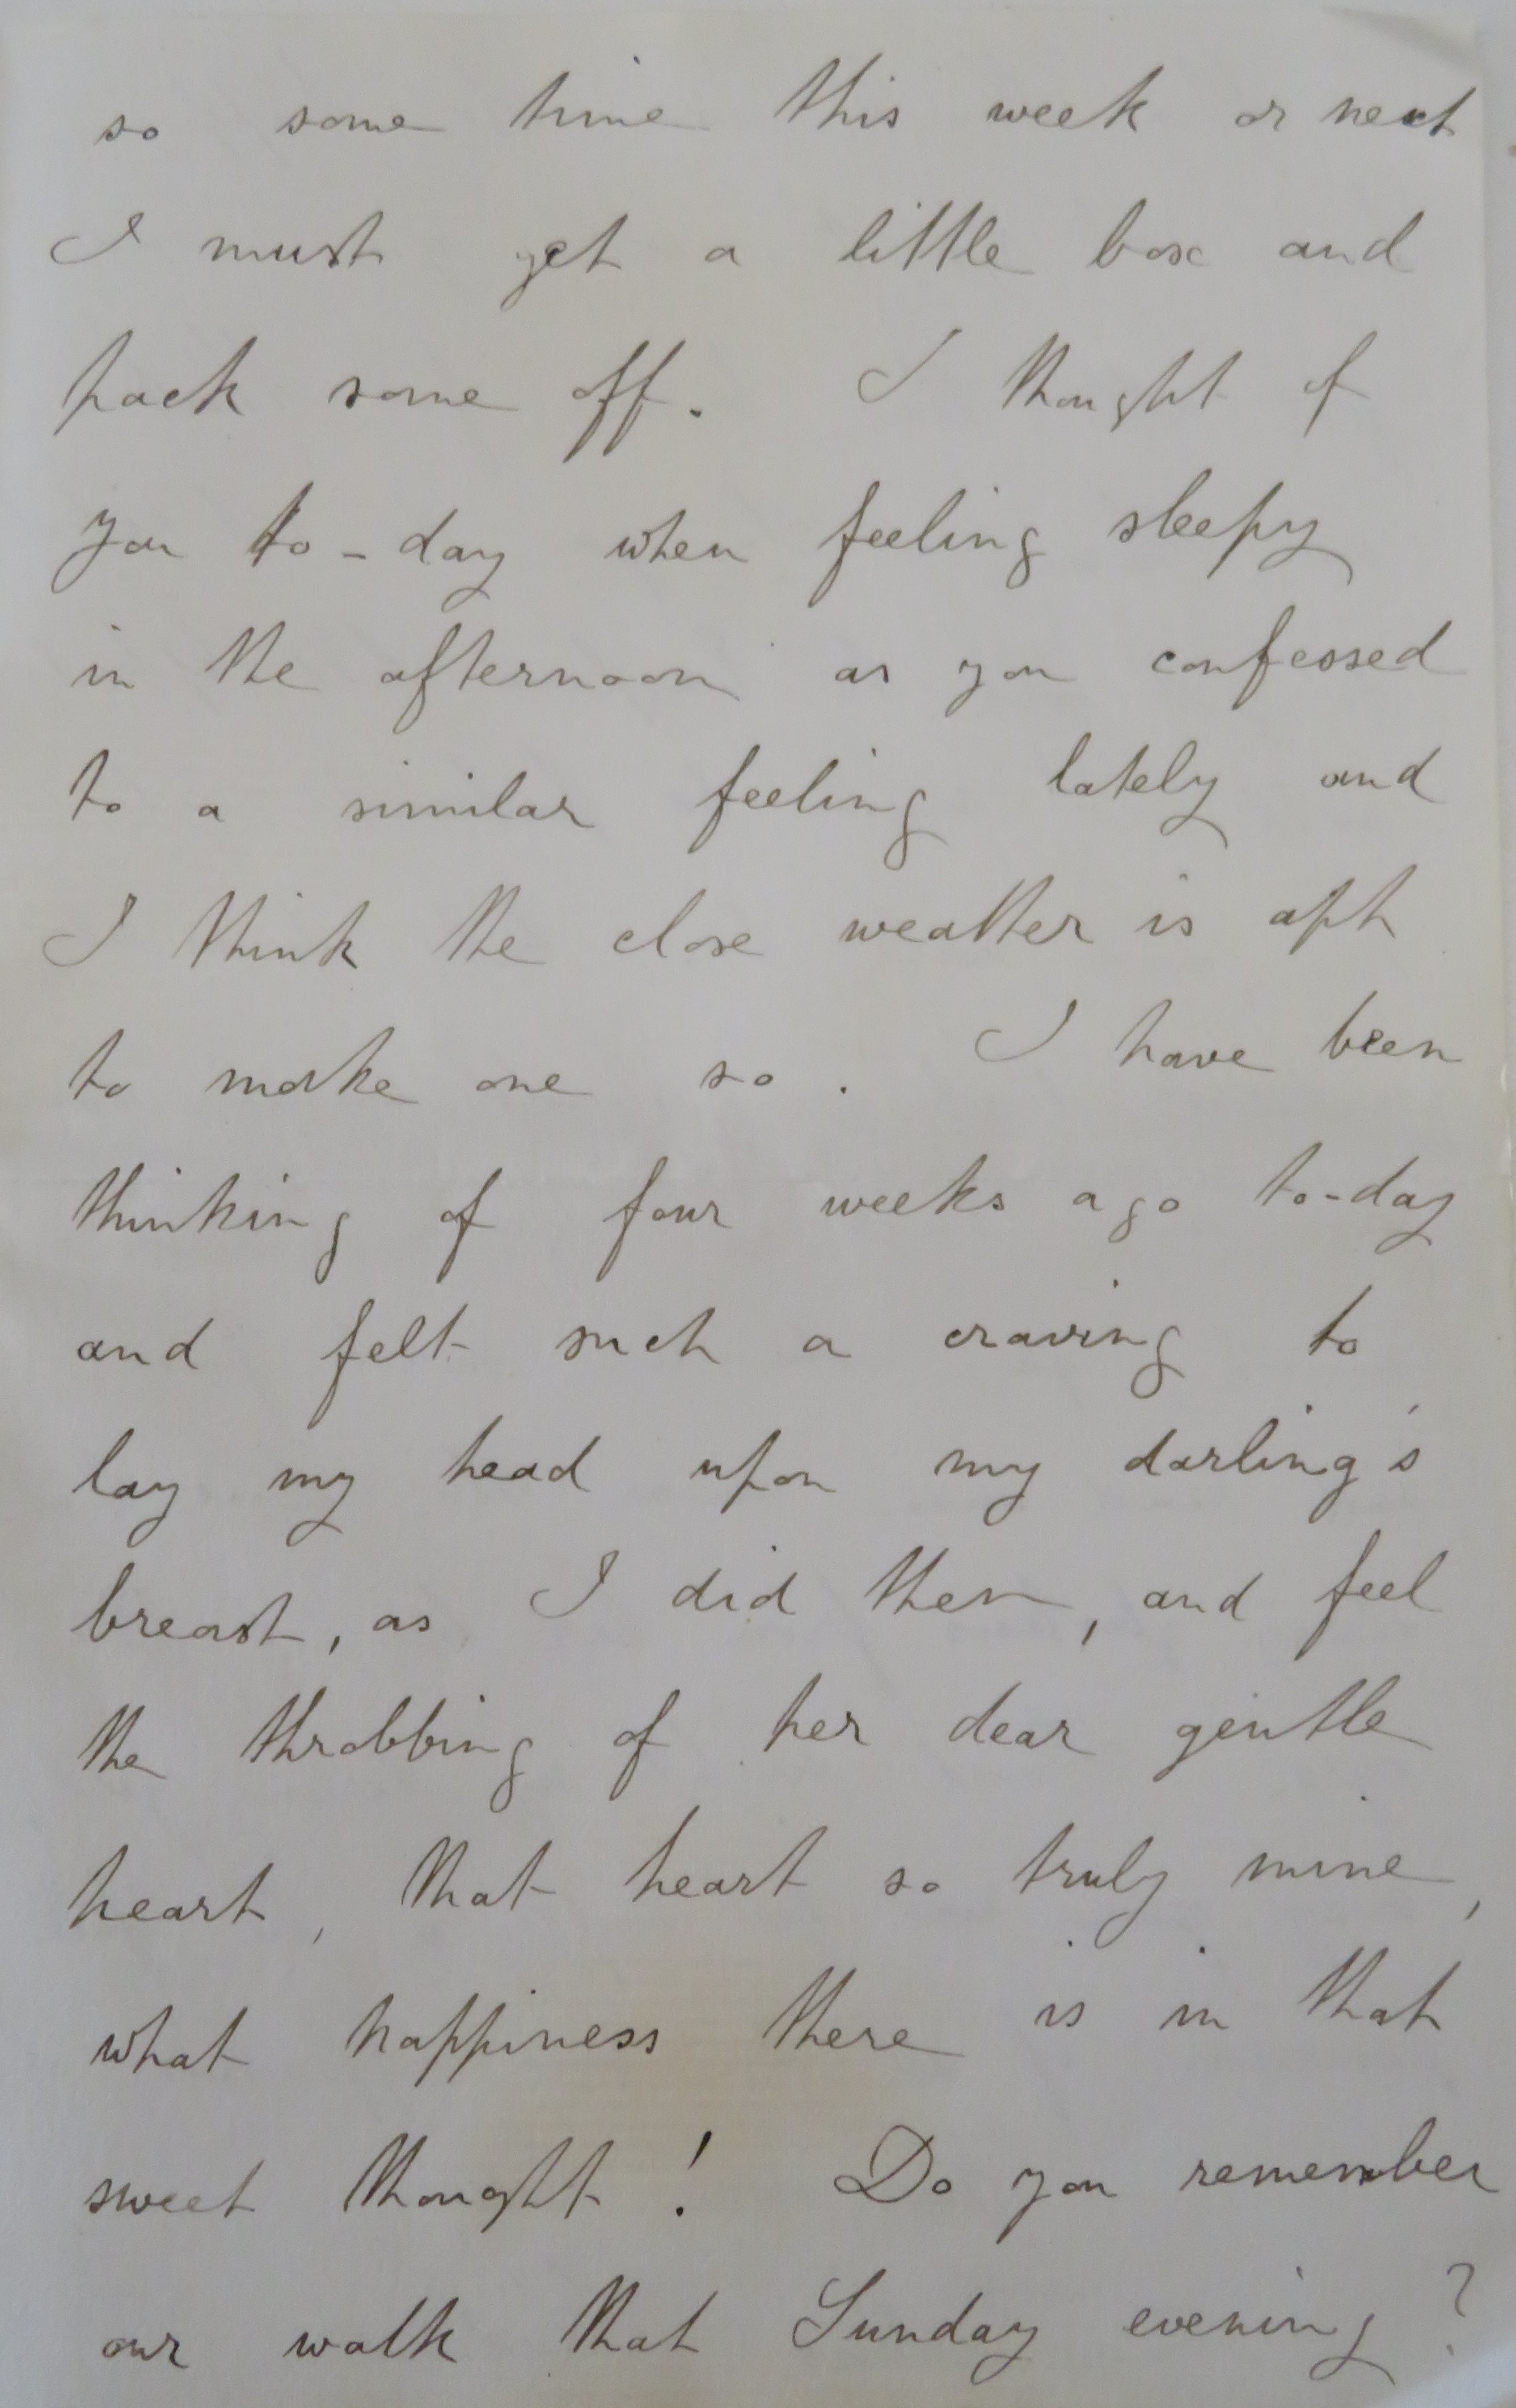 so some time this week or next
I must get a little box and
pack some off. I thought of
you to-day when feeling sleepy
in the afternoon as you confessed
to a similar feeling lately and
I think the close weather is apt
to make one so. I have been
thinking of four weeks ago to-day
and felt such a craving to
lay my head upon my darling's
breast, as I did then, and feel
the throbbing of her dear gentle
heart, that heart so truly mine,
what happiness there is in that
sweet thought! Do you remember
our walk that Sunday evening?